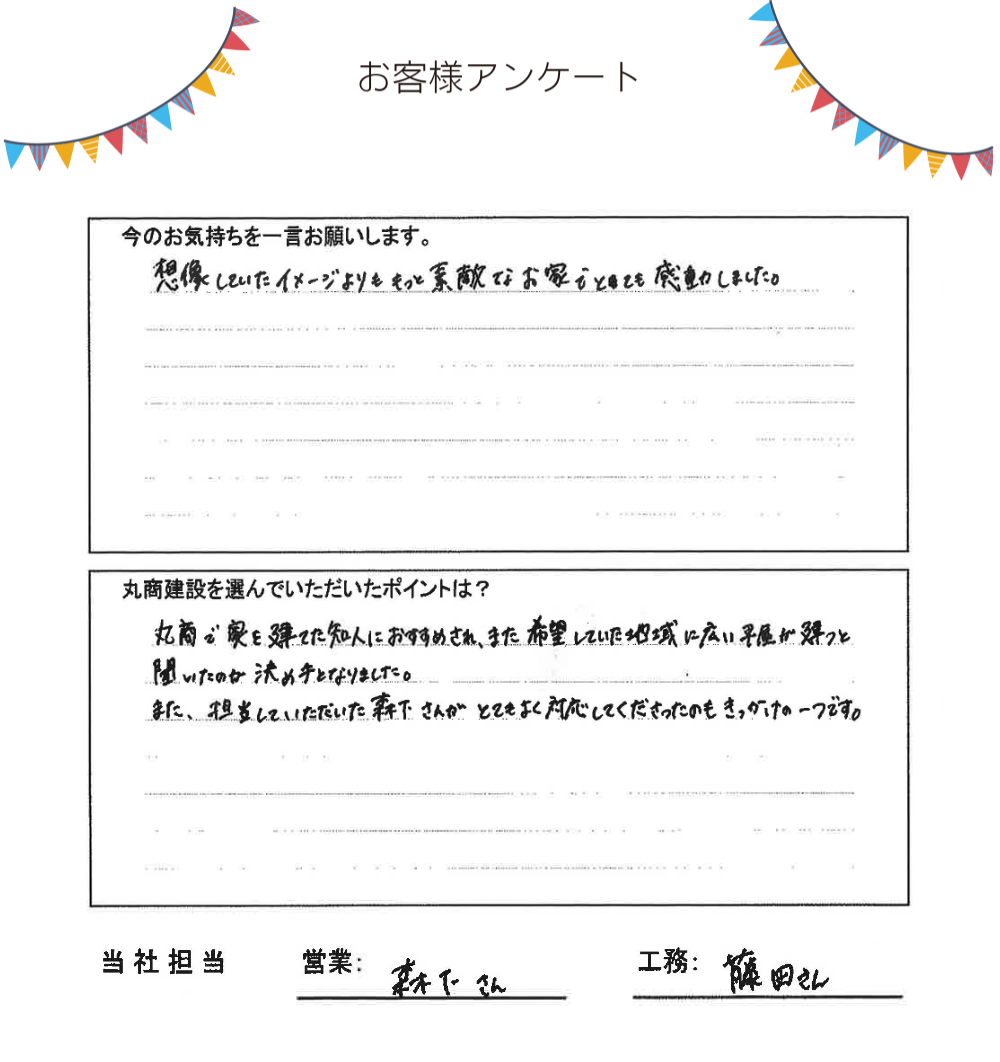 お客様アンケート
今のお気持ちを一言お願いします。
想像していたイメージよりももっと素敵なお家でとても感動しました。
丸商建設を選んでいただいたポイントは？
丸商で家を建てた知人におすすめされ、また希望していた地域に広い平屋が建つと
聞いたのが決め手となりました。
また、担当していただいた森下さんがとてもよく対応してくださったのもきっかけの一つです。
当社担当 営業: 森下さん 工務: 藤田さん